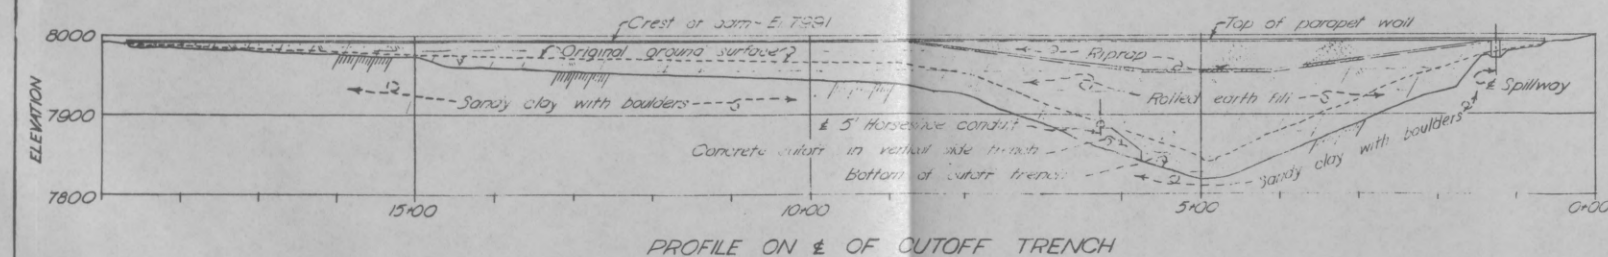 Crest of dam - El. 7991
Top of parapet wall
8000
Original ground surface
Riprap
Sandy clay with boulders
Rolled earth fill
₵ Spillway
7900
ELEVATION
₵ 5' Horseshoe conduit
Concrete cutoff in vertical side trench
Bottom of cutoff trench
Sandy clay with boulders
7800
15+00
10+00
5+00
0+00
PROFILE ON ₵ OF CUTOFF TRENCH